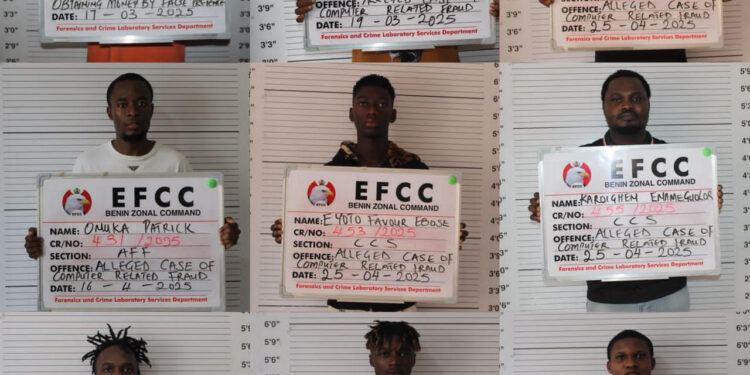 OBTAINING MONEY BY FALSE PRETENCE
DATE: 17-03-2025
Forensics and Crime Laboratory Services Department
OFFENCE:
COMPUTER RELATED FRAUD
DATE: 19-03-2025
Forensics and Crime Laboratory Services Department
OFFENCE: ALLEGED CASE OF
COMPUTER RELATED FRAUD
DATE: 25-04-2025
Forensics and Crime Laboratory Services Department
EFCC
BENIN ZONAL COMMAND
NAME: ONUKA PATRICK
CR/NO: 431/2025
SECTION: AFF
OFFENCE: ALLEGED CASE OF
COMPUTER RELATED FRAUD
DATE: 16-4-2025
Forensics and Crime Laboratory Services Department
EFCC
BENIN ZONAL COMMAND
NAME: EYOTO FAVOUR EBOSE
CR/NO: 453/2025
SECTION: CCS
OFFENCE: ALLEGED CASE OF
COMPUTER RELATED FRAUD
DATE: 25-04-2025
Forensics and Crime Laboratory Services Department
EFCC
BENIN ZONAL COMMAND
NAME: KARDIGHEN ENAMEGUOLOR
CR/NO: 455/2025
SECTION: CCS
OFFENCE: ALLEGED CASE OF
COMPUTER RELATED FRAUD
DATE: 25-04-2025
Forensics and Crime Laboratory Services Department